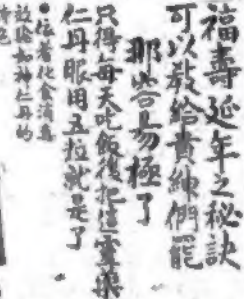 福壽延年之秘訣
可以教給貴紳們罷
那容易極了
只得每天吃飯後把這靈藥
仁丹眼用五拉就是了
●伝者化食消毒
效驗如神仁丹的
特色